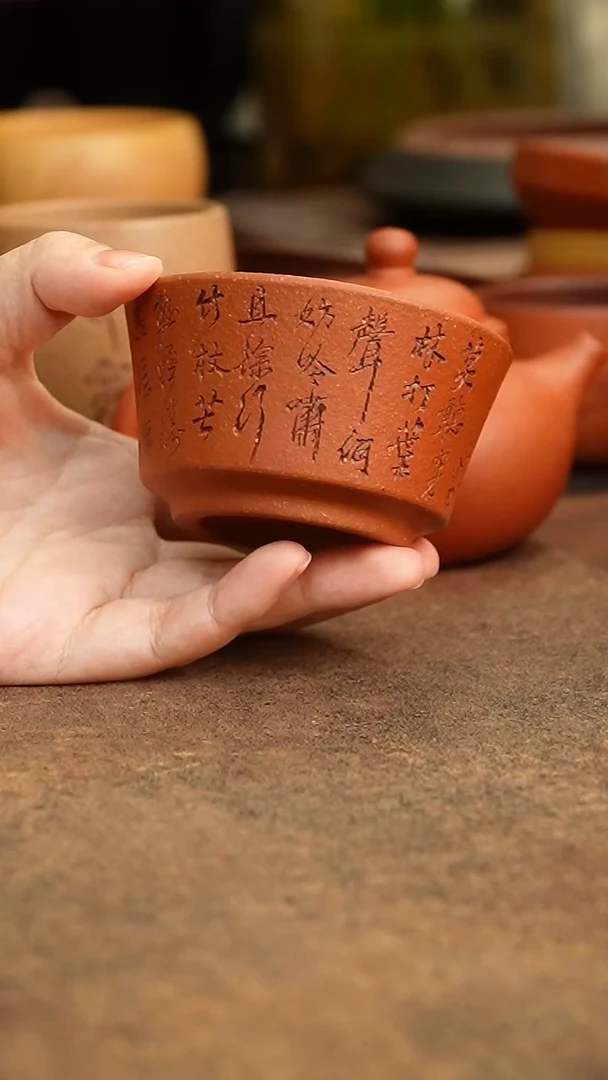 莫聽穿
林打葉
聲何
妨吟嘯
且徐行
竹杖芒
鞋輕勝